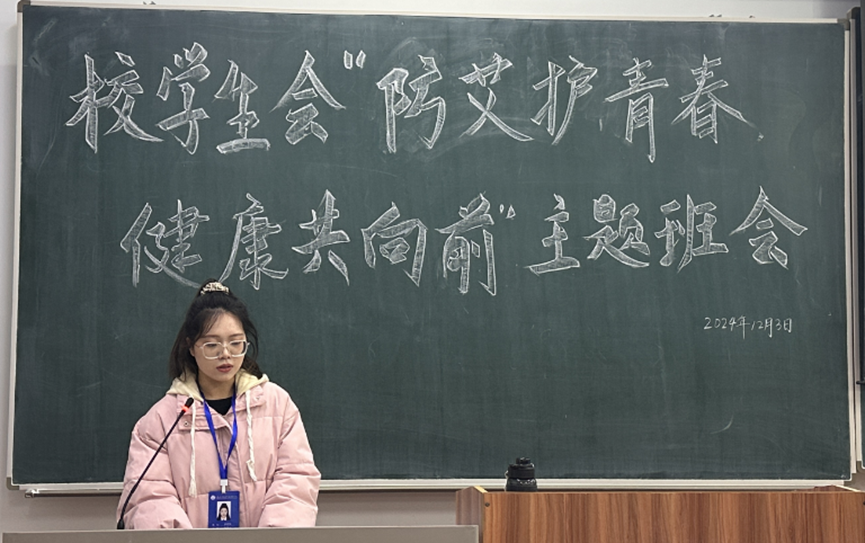 校学生会“防艾护青春
健康共向前”主题班会
2024年12月3日